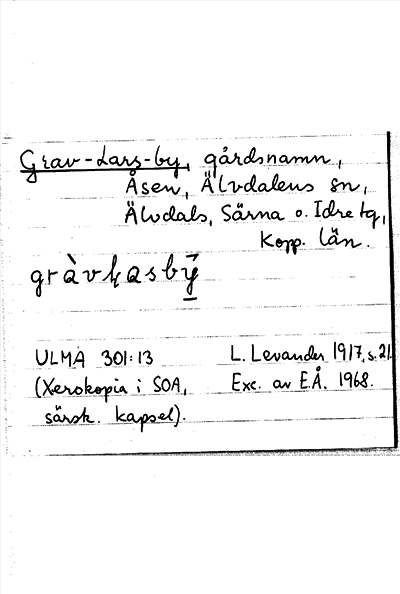 Grav-Lars-by, gårdsnamn,
Åsen, Älvdalens sn,
Älvdals, Särna o. Idre tg,
Kopp. län.
ULMA 301:13
(Xerokopia i SOA,
särsk. kapsel).
L. Levander 1917, s. 21.
Exc. av E.Å. 1968.